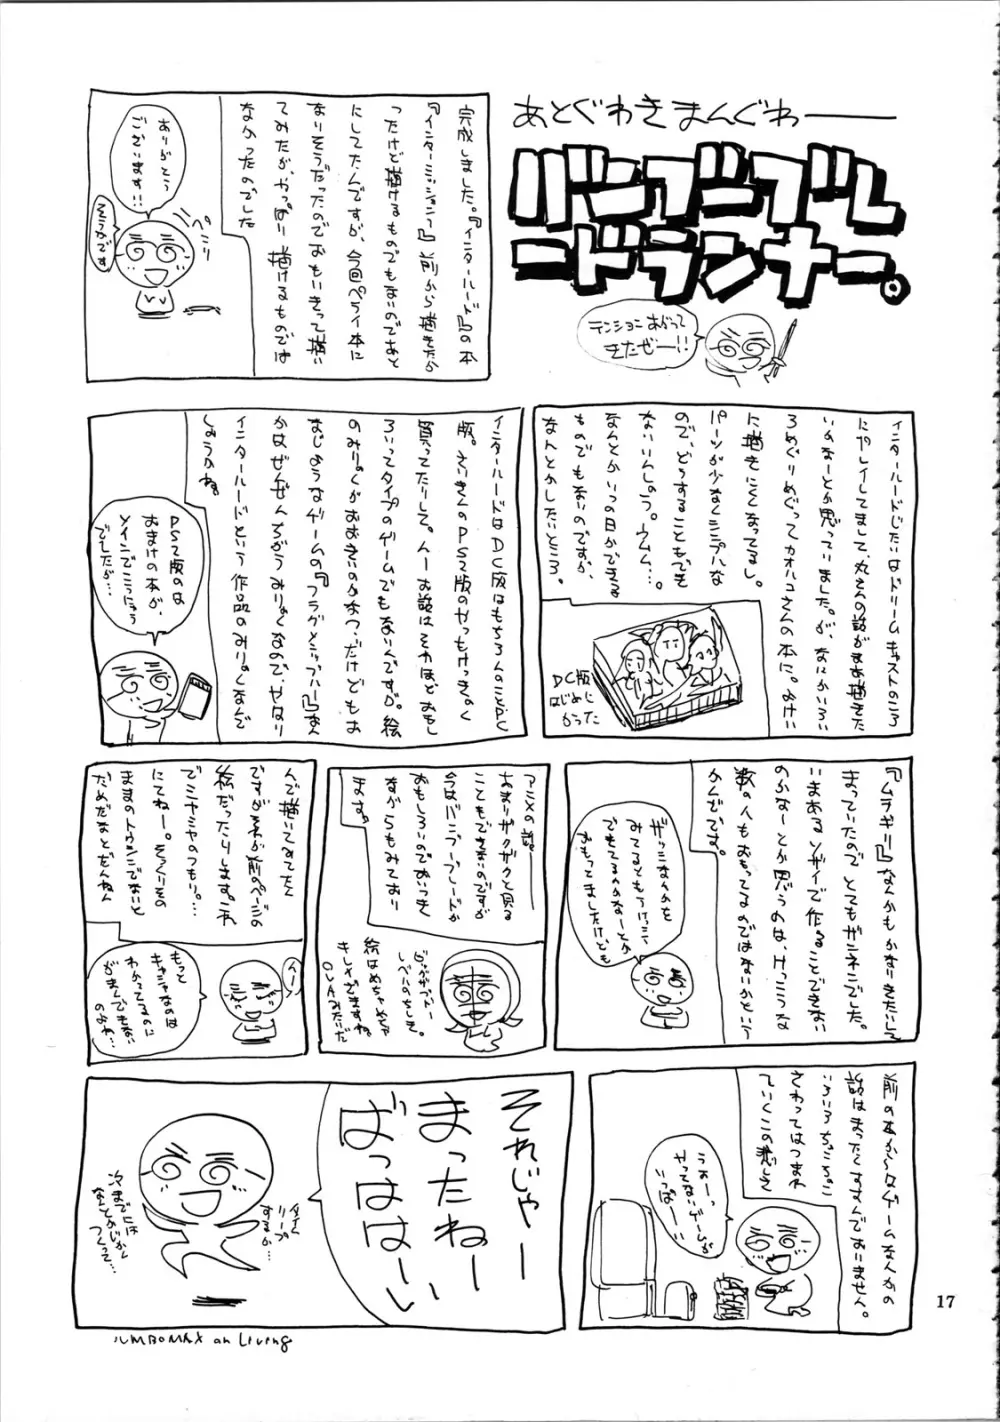 あとぐわきまんぐわ――
バンブーブレ
ードランナー。
テンションあがって
きたぜー!!
完成しました。『インターハート』の本
『インターミッション』前から描きたか
ったけど描けるものでもないのであと
にしてたんですが、今回ペライ本に
なりそうだったのでおもいきって描い
てみたが、やっぱり描けるものでは
なかったのでした
ありがとう
ございます!!
そうかです
ペこり
インターハートじたいはドリームキャストのころ
にプレイしてまして、丸さんの話がまあ描きた
いかなーとか思っていました。が、なにかいろい
ろめぐりめぐってカオハコさんの本に。おけい
に描きにくくなってるし。
パーツが少なくシンプルな
ので、どうすることもでき
ないいんしょう。ウムム…。
なんとかいつの日かできる
ものでもないのですが、
なんとかしたいところ。
DC版
はじめに
かった
インターハートはDC版はもちろんのことPC
版。さいきんのPS2版のやつもけっきょく
買ってたりして。んーお話はそれほどおもし
ろいってタイプのゲームでもないんですが。絵
のみりょくがおおきいのかなっ。だけどもお
なじようなゲームの『フラグメンツハート』なん
かはぜんぜんちがうみりょくなので、やはり
インターハートという作品のみりょくなんで
しょうかね。
PS2版のは
おまけの本が、
メインでこうにゅう
でしたが…
『ムラギリ』なんかもかなりきたいして
まっていたのでとてもザンネンでした。
いまあるソザイで作ることできない
のかなーとか思うのは、けっこうな
数の人もおもってるのではないかという
かんじです。
ギッシなんかを
みてるともうけっこう
できてるんかなーとか
おもってましたけども
アニメの話。――
あまりザクザクと見る
こともできないのですが
今はバンブーブレードが
おもしろいのでおいつき
ながらもみており
ます。
絵はめちゃめちゃ
きしんでますね。
OVAみたいだ
んで描いてみてたく
ですがそれが前のページの
絵だったりします。これ
でミヤミヤのつもり…。
にてねー。そっくりその
ままのトウシンでないと
だめだなとぜんねん
んー
もっと
キャシャなのは
わかってるのに
がまんできない
のよね…
前の本からはゲームなんかの
話はまったくすすんでおりません。
いろいろちょこちょこ
さわってはつまれ
ていくこの悲しさ
うぉーっ
やってないゲームが
いっぱーい!!
それじゃー
まったねー
ばっはは～い
タイム
リープ
するか…
次までには
なんとかいかく
つくって…
JUMBOMAX on Living
17